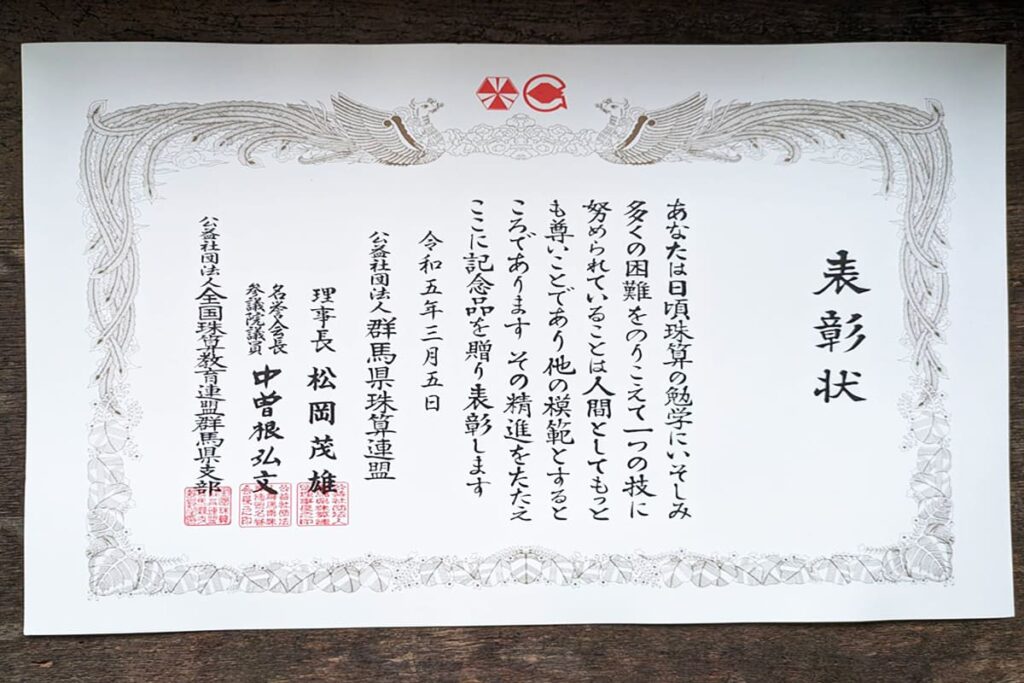 表彰状
あなたは日頃珠算の勉学にいそしみ
多くの困難をのりこえて一つの技に
努められていることは人間としてもっと
も尊いことであり他の模範とすると
ころであります その精進をたたえ
ここに記念品を贈り表彰します
令和五年三月五日
公益社団法人 群馬県珠算連盟
理事長 松岡茂雄
名誉会長
参議院議員 中曽根弘文
公益社団法人全国珠算教育連盟群馬県支部